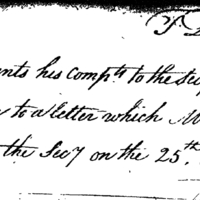 nts his compts to the Sec
to a letter which M
the Secy on the 25th.